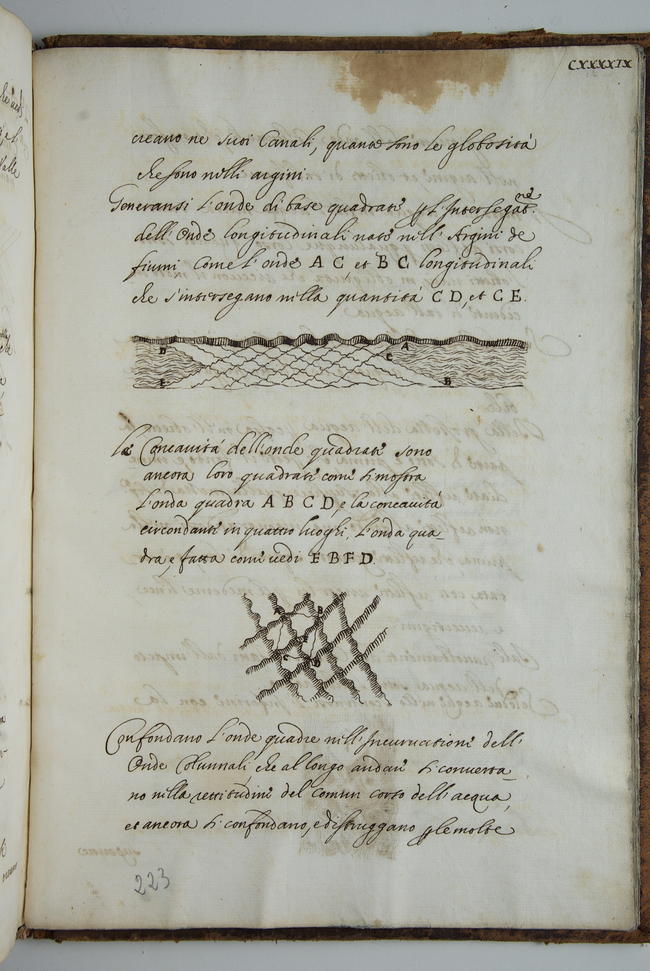 CXXXXIX
creano ne suoi Canali, quante sono le globosità
che sono nelli argini
Generansi l'onde di base quadrate p l'Intersegat.ne
dell'Onde longitudinali nate nell'Argini de
fiumi Come l'onde A C et B C longitudinali
che s'intersegano nella quantità C D, et C E.
D
A
C
E
B
le Concavità dell'onde quadrate sono
ancora loro quadrate come si mostra
l'onda quadra A B C D, e la concavità
circondante in quattro luoghi, l'onda qua
dra, e fatta come vedi E B F D.
Confondano l'onde quadre nell'Incurvatione dell'
Onde Colunnali, che al longo andare si converta
no nella rettitudine del comun corso dell'acqua,
et ancora si confondano, e distruggano p le molte
223